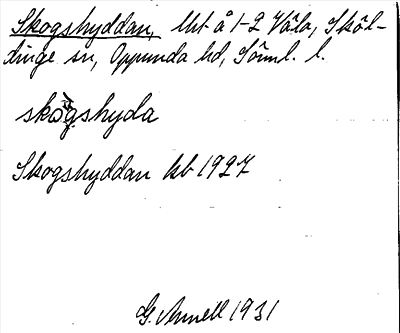 Skogshyddan, lht å 1-2 Våla, Sköl-
dinge sn, Oppunda hd, Söml. l.
skògshyda
Skogshyddan kb 1927
G. Annell 1931